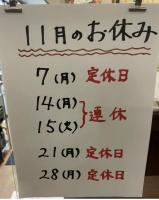 11月のお休み
7(月) 定休日
14(月)
15(火) } 連休
21(月) 定休日
28(月) 定休日